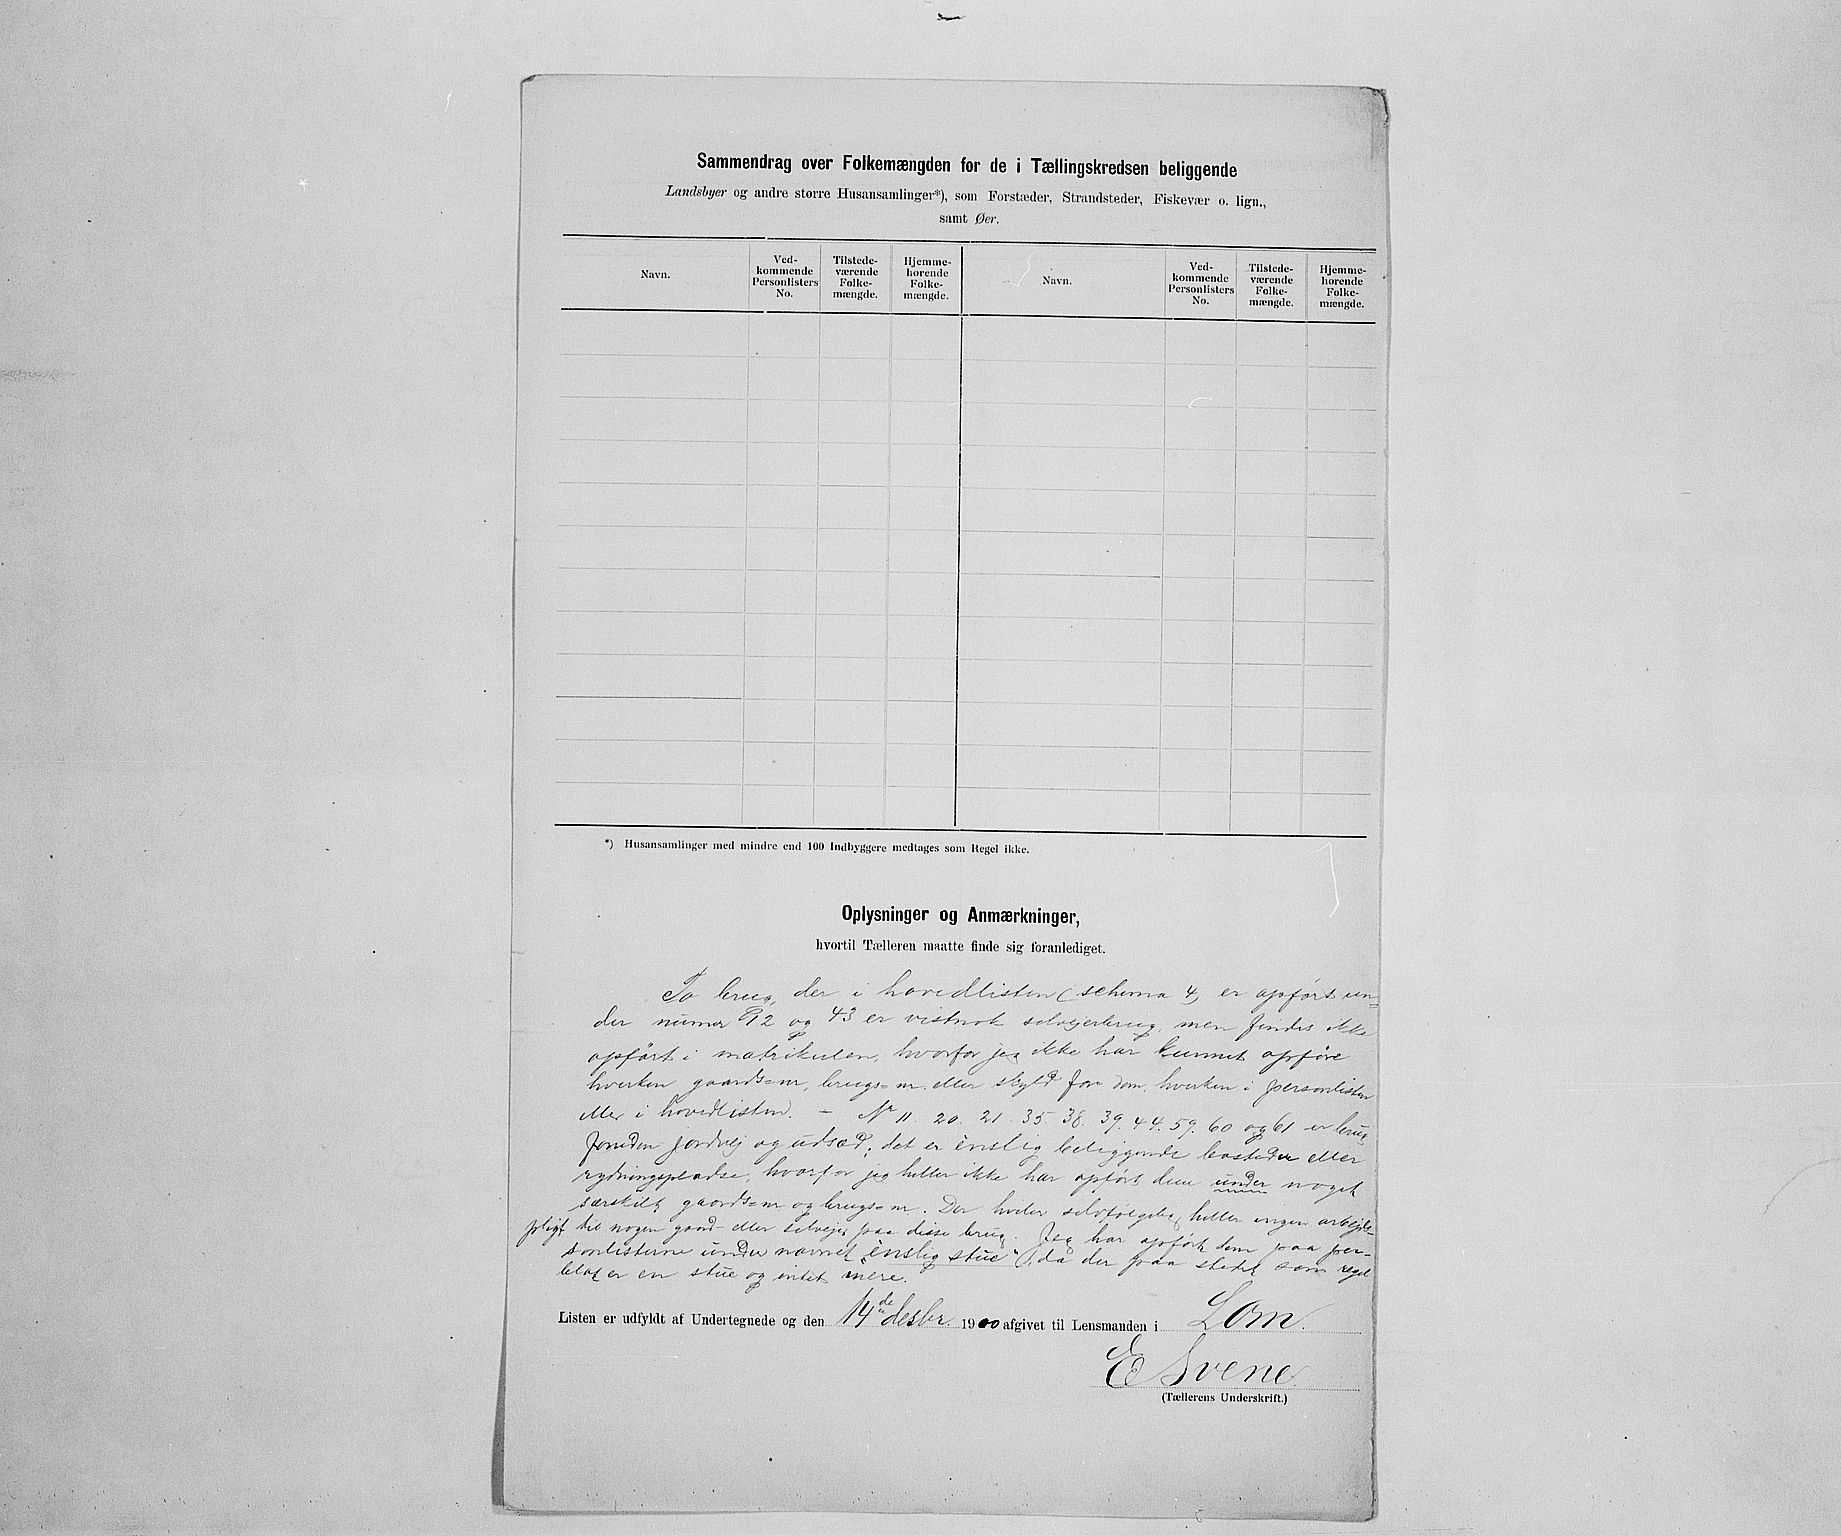 Sammendrag over Folkemængden for de i Tællingskredsen beliggende
Landsbyer og andre større Husansamlinger*), som Forstæder, Strandsteder, Fiskevær o. lign.,
samt Øer.
Navn.
Ved-
kommende
Personlisters
No.
Tilstede-
værende
Folke-
mængde.
Hjemme-
hørende
Folke-
mængde.
Navn.
Ved-
kommende
Personlisters
No.
Tilstede-
værende
Folke-
mængde.
Hjemme-
hørende
Folke-
mængde.
*) Husansamlinger med mindre end 100 Indbyggere medtages som Regel ikke.
Oplysninger og Anmærkninger,
hvortil Tælleren maatte finde sig foranlediget.
To brug, der i hovedlisten (schema 4) er opført un-
der numer 12 og 43 er vistnok selveierbrug, men findes ikke
opført i matrikulen, hvorfor jeg ikke har kunnet opføre
hverken gaards=nr, brugs=nr. eller skyld for dem, hverken i personlisten
eller i hovedlisten. – Nr 11. 20. 21. 35. 38. 39. 44. 59. 60 og 61 er brug
foruden jordvej og udsæd; det er enslig beliggende bosteder eller
rydningspladse, hvorfor jeg heller ikke har opført dem under noget
særskilt gaards=nr og brugs=nr. Der hviler selvfølgelig heller ingen arbejds-
pligt til nogen gaard- eller selvejer paa disse brug. Jeg har opført dem paa per-
sonlisterne under navnet „enslig stue“, da der paa stedet som regel
blot er en stue og intet mere.
Listen er udfyldt af Undertegnede og den 14de desbr. 1900 afgivet til Lensmanden i Lom.
E Svene
(Tællerens Underskrift.)